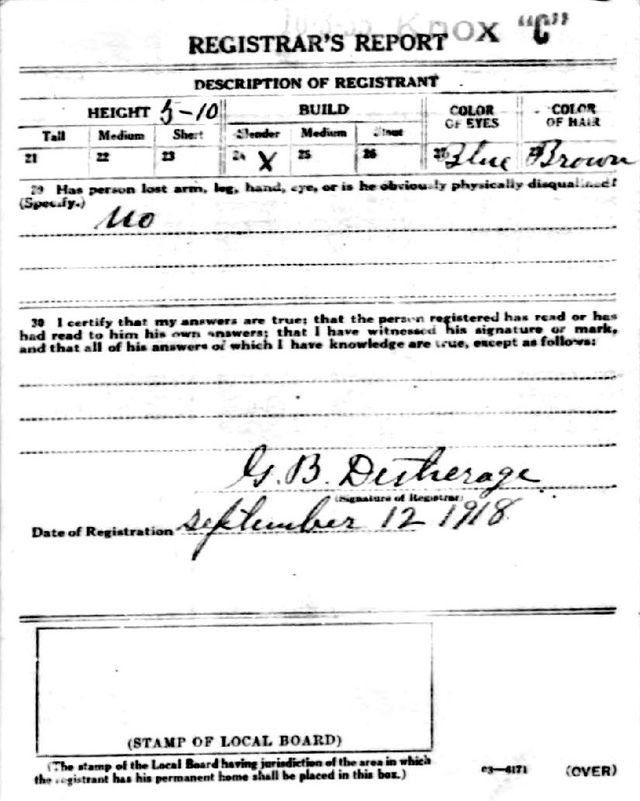 Knox "C"
REGISTRAR'S REPORT
DESCRIPTION OF REGISTRANT
HEIGHT 5-10 BUILD COLOR OF EYES COLOR OF HAIR
Tall Medium Short Slender Medium Stout
21 22 23 24 X 25 26 27 Blue 28 Brown
29 Has person lost arm, leg, hand, eye, or is he obviously physically disqualified?
(Specify.)
No
30 I certify that my answers are true; that the person registered has read or has
had read to him his own answers; that I have witnessed his signature or mark,
and that all of his answers of which I have knowledge are true, except as follows:
G. B. Detherage
(Signature of Registrar)
Date of Registration September 12 1918
(STAMP OF LOCAL BOARD)
(The stamp of the Local Board having jurisdiction of the area in which
the registrant has his permanent home shall be placed in this box.)
03—6171 (OVER)